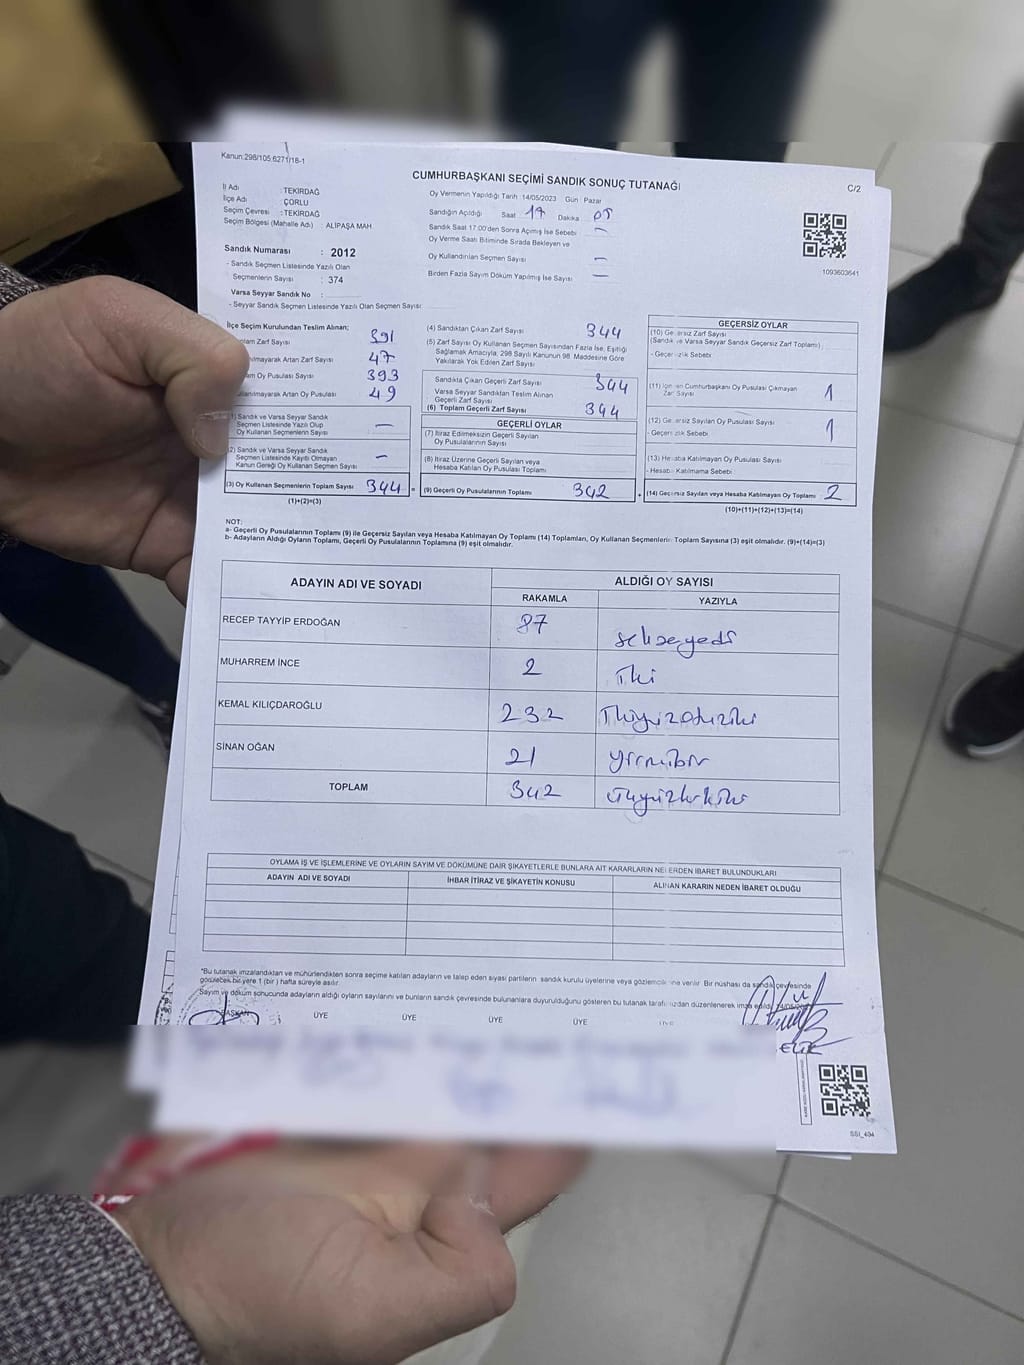 Kanun:298/105.6271/18-1
CUMHURBAŞKANI SEÇİMİ SANDIK SONUÇ TUTANAĞI
C/2
İl Adı : TEKİRDAĞ
İlçe Adı : ÇORLU
Seçim Çevresi : TEKİRDAĞ
Seçim Bölgesi (Mahalle Adı) : ALİPAŞA MAH.
Sandık Numarası : 2012
- Sandık Seçmen Listesinde Yazılı Olan
Seçmenlerin Sayısı : 374
Varsa Seyyar Sandık No :
- Seyyar Sandık Seçmen Listesinde Yazılı Olan Seçmen Sayısı:
Oy Vermenin Yapıldığı Tarih :14/05/2023 Gün : Pazar
Sandığın Açıldığı Saat 17 Dakika 05
Sandık Saat 17:00'den Sonra Açılmış İse Sebebi —
Oy Verme Saati Bitiminde Sırada Bekleyen ve
Oy Kullandırılan Seçmen Sayısı —
Birden Fazla Sayım Döküm Yapılmış İse Sayısı —
1093603641
İlçe Seçim Kurulundan Teslim Alınan;
Zarf Sayısı 391
Artan Zarf Sayısı 47
Oy Pusulası Sayısı 393
Artan Oy Pusulası 49
(1) Sandık ve Varsa Seyyar Sandık
Seçmen Listesinde Yazılı Olup
Oy Kullanan Seçmenlerin Sayısı —
(2) Sandık ve Varsa Seyyar Sandık
Seçmen Listesinde Kayıtlı Olmayan
Kanun Gereği Oy Kullanan Seçmen Sayısı —
(3) Oy Kullanan Seçmenlerin Toplam Sayısı 344 =
(1)+(2)=(3)
(4) Sandıktan Çıkan Zarf Sayısı 344
(5) Zarf Sayısı Oy Kullanan Seçmen Sayısından Fazla İse, Eşitliği
Sağlamak Amacıyla, 298 Sayılı Kanunun 98. Maddesine Göre
Yakılarak Yok Edilen Zarf Sayısı
Sandıkta Çıkan Geçerli Zarf Sayısı 344
Varsa Seyyar Sandıktan Teslim Alınan
Geçerli Zarf Sayısı
(6) Toplam Geçerli Zarf Sayısı 344
GEÇERLİ OYLAR
(7) İtiraz Edilmeksizin Geçerli Sayılan
Oy Pusulalarının Sayısı
(8) İtiraz Üzerine Geçerli Sayılan veya
Hesaba Katılan Oy Pusulası Toplamı
(9) Geçerli Oy Pusulalarının Toplamı 342 +
GEÇERSİZ OYLAR
(10) Geçersiz Zarf Sayısı
(Sandık ve Varsa Seyyar Sandık Geçersiz Zarf Toplamı)
- Geçersizlik Sebebi
(11) İçinden Cumhurbaşkanı Oy Pusulası Çıkmayan
Zarf Sayısı 1
(12) Geçersiz Sayılan Oy Pusulası Sayısı 1
- Geçersizlik Sebebi
(13) Hesaba Katılmayan Oy Pusulası Sayısı
- Hesaba Katılmama Sebebi
(14) Geçersiz Sayılan veya Hesaba Katılmayan Oy Toplamı 2
(10)+(11)+(12)+(13)=(14)
NOT:
a- Geçerli Oy Pusulalarının Toplamı (9) ile Geçersiz Sayılan veya Hesaba Katılmayan Oy Toplamı (14) Toplamları, Oy Kullanan Seçmenlerin Toplam Sayısına (3) eşit olmalıdır. (9)+(14)=(3)
b- Adayların Aldığı Oyların Toplamı, Geçerli Oy Pusulalarının Toplamına (9) eşit olmalıdır.
ADAYIN ADI VE SOYADI ALDIĞI OY SAYISI
RAKAMLA YAZIYLA
RECEP TAYYİP ERDOĞAN 87 seksenyedi
MUHARREM İNCE 2 İki
KEMAL KILIÇDAROĞLU 232 İkiyüzotuziki
SİNAN OĞAN 21 yirmibir
TOPLAM 342 üçyüzkırkiki
OYLAMA İŞ VE İŞLEMLERİNE VE OYLARIN SAYIM VE DÖKÜMÜNE DAİR ŞİKAYETLERLE BUNLARA AİT KARARLARIN NELERDEN İBARET BULUNDUKLARI
ADAYIN ADI VE SOYADI İHBAR İTİRAZ VE ŞİKAYETİN KONUSU ALINAN KARARIN NEDEN İBARET OLDUĞU
*Bu tutanak imzalandıktan ve mühürlendikten sonra seçime katılan adayların ve talep eden siyasi partilerin sandık kurulu üyelerine veya gözlemcilerine verilir. Bir nüshası da sandık çevresinde
görülecek bir yere 1 (bir) hafta süreyle asılır.
Sayım ve döküm sonucunda adayların aldığı oyların sayılarını ve bunların sandık çevresinde bulunanlara duyurulduğunu gösteren bu tutanak tarafımızdan düzenlenerek imza edildi.
BAŞKAN ÜYE ÜYE ÜYE ÜYE ÜYE
SSI_404